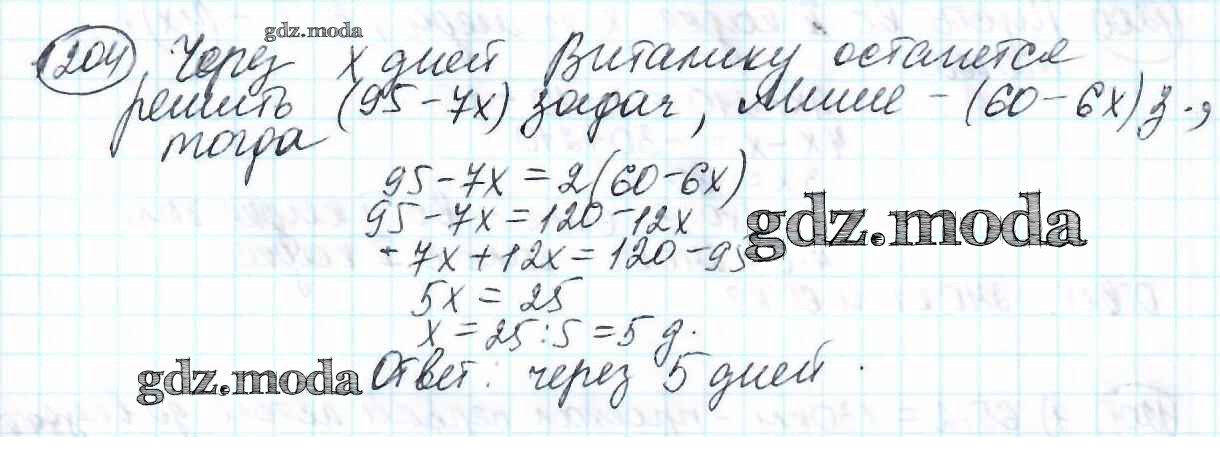 gdz.moda
204 Через x дней Виталику останется
решить (95 - 7x) задач, Мише - (60 - 6x) з.,
тогда
95 - 7x = 2(60 - 6x)
95 - 7x = 120 - 12x
gdz.moda
- 7x + 12x = 120 - 95
5x = 25
x = 25 : 5 = 5 д.
gdz.moda
Ответ: через 5 дней.